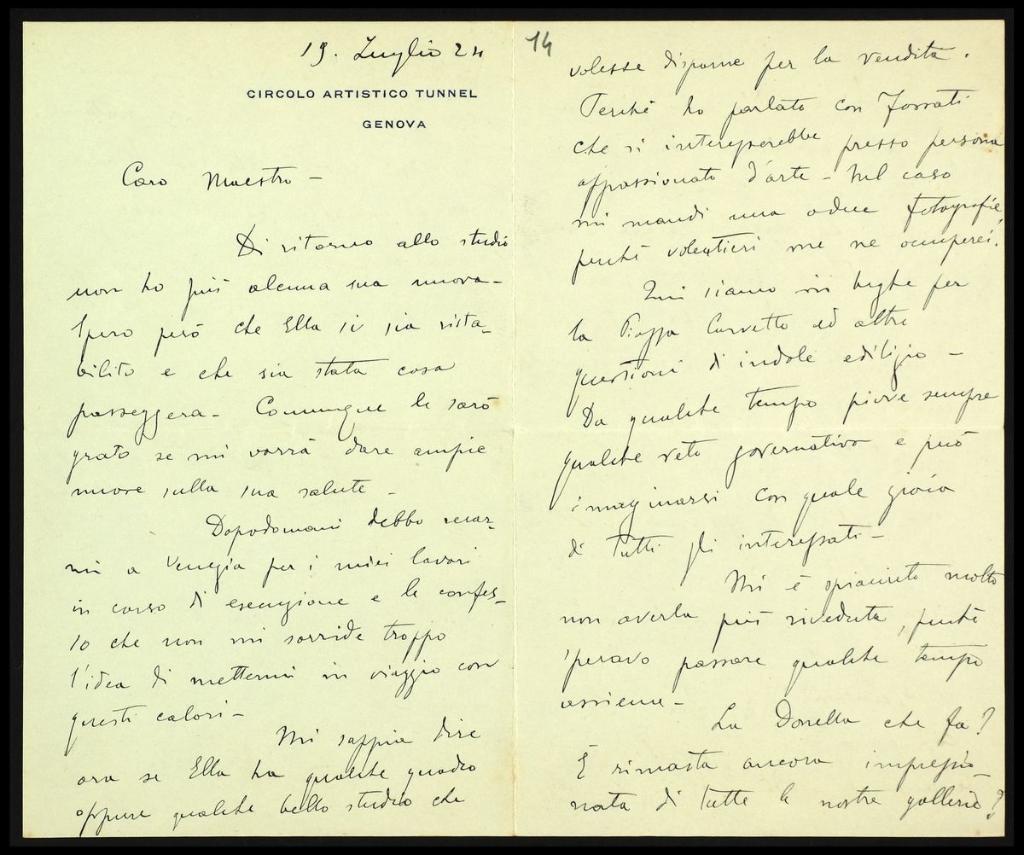 19. Luglio 24
CIRCOLO ARTISTICO TUNNEL
GENOVA
Caro Maestro -
Di ritorno allo studio
non ho più alcuna sua nuova -
Spero però che Ella si sia rista-
bilito e che sia stata cosa
passeggera - Comunque le sarò
grato se mi vorrà dare ampie
nuove sulla sua salute -
Dopodomani debbo recar-
mi a Venezia per i miei lavori
in corso di esecuzione e le confes-
so che non mi sorride troppo
l'idea di mettermi in viaggio con
questi calori -
Mi sappia dire
ora se Ella ha qualche quadro
oppure qualche bello studio che
14
volesse disporne per la vendita.
Perchè ho parlato con
che si interesserebbe presso persona
appassionata d'arte - Nel caso
mi mandi una o due fotografie,
perchè volentieri me ne occuperei.
Qui siamo in beghe per
la Piazza Corvetto ed altre
questioni di indole edilizio -
Da qualche tempo piove sempre
qualche veto governativo e può
immaginarsi con quale gioia
di tutti gli interessati -
Mi è spiaciuto molto
non averla più riveduta, perchè
speravo passare qualche tempo
assieme -
La Donella che fa?
È rimasta ancora impressio-
nata di tutte le nostre gallerie?